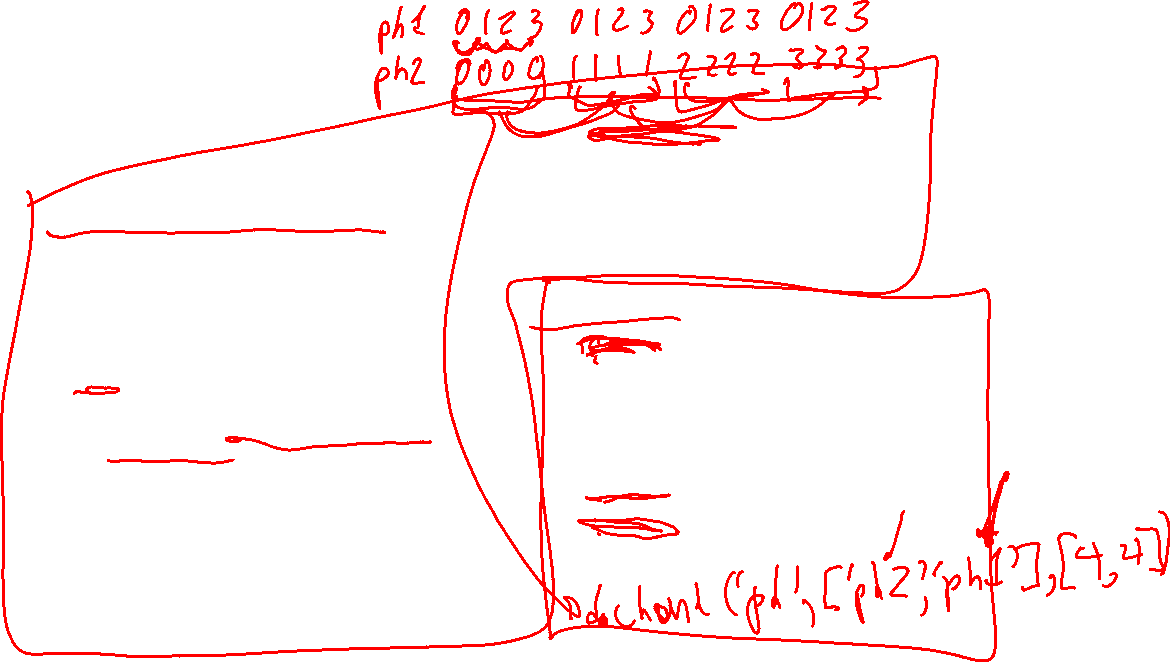 ph1 0123 0123 0123 0123
ph2 0000 1111 2222 3333
.chunk('ph',['ph2','ph1'],[4,4])